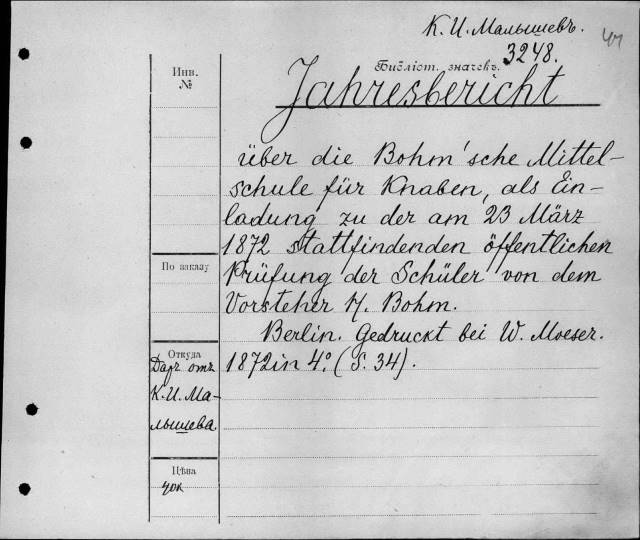 К. И. Малышевъ.
3248.
Библіот. значекъ.
Инв.
№
Jahresbericht
über die Bohm'sche Mittel-
schule für Knaben, als Ein-
ladung zu der am 23 März
1872 stattfindenden öffentlichen
Prüfung der Schüler von dem
Vorsteher H. Bohm.
Berlin. Gedruckt bei W. Moeser.
1872 in 4º. (S. 34).
По заказу
Откуда
Даръ отъ
К. И. Ма-
лышева
Цѣна